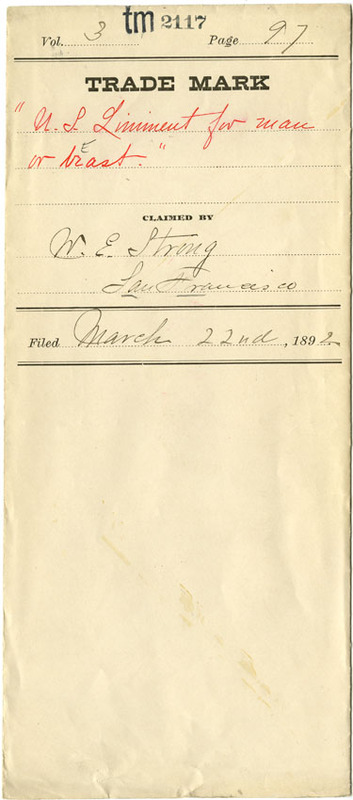 tm 2117
Vol. 3 Page 97
TRADE MARK
"U.S. Liniment for man
or bEast."
CLAIMED BY
W. E. Strong
San Francisco
Filed March 22nd, 1892